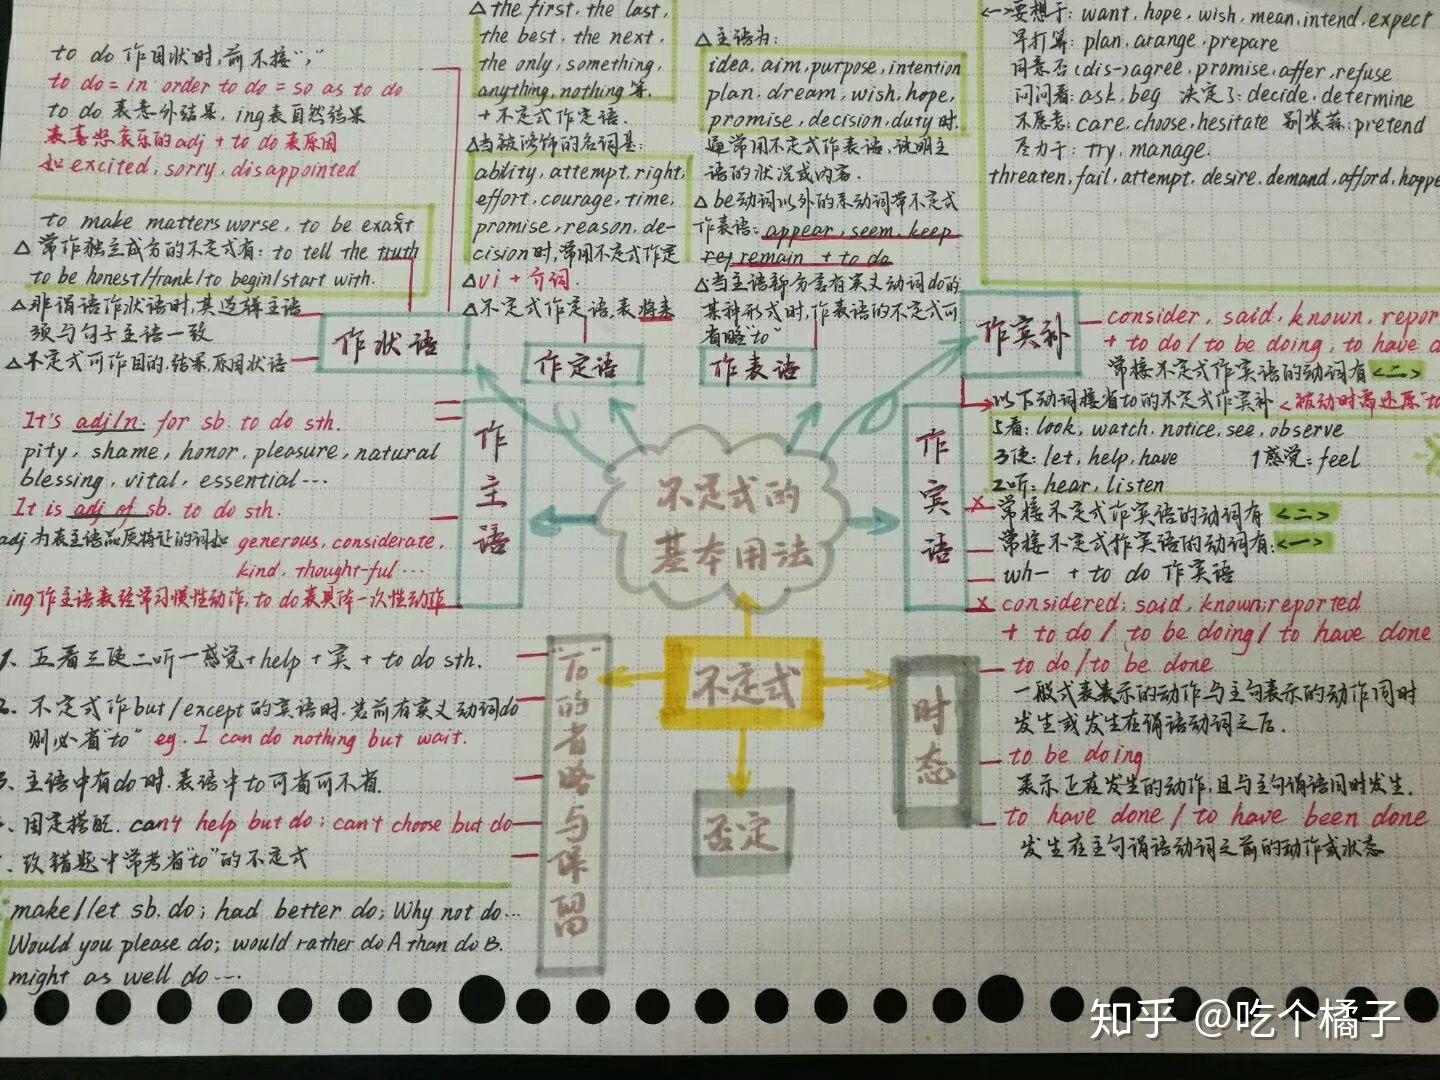 to do 作目状时,前不接“,”
to do = in order to do = so as to do
to do 表意外结果, ing表自然结果
表喜怒哀乐的adj + to do 表原因
如 excited, sorry, disappointed
to make matters worse, to be exact
△ 常作独立成分的不定式有: to tell the truth
to be honest/frank/to begin/start with.
△非谓语作状语时,其逻辑主语
须与句子主语一致
△不定式可作目的,结果,原因状语
作状语
△the first, the last,
the best, the next,
the only, something,
anything, nothing等,
+ 不定式作定语.
△当被修饰的名词是:
ability, attempt, right,
effort, courage, time,
promise, reason, de-
cision时,常用不定式作定
△vi + 介词.
△不定式作定语,表将来
作定语
△主语为:
idea, aim, purpose, intention
plan, dream, wish, hope,
promise, decision, duty时,
通常用不定式作表语,说明主
语的状况或内容.
△ be动词以外的系动词带不定式
作表语: appear, seem, keep
remain + to do
△当主语部分含有实义动词do的
某种形式时,作表语的不定式可
省略“to”
作表语
<一>要想于: want, hope, wish, mean, intend, expect
早打算: plan, arange, prepare
同意否 (dis-)agree, promise, affer, refuse
问问看: ask, beg 决定了: decide, determine
不愿意: care, choose, hesitate 别装蒜: pretend
尽力于: try, manage.
threaten, fail, attempt, desire, demand, afford, happe
作宾补
consider, said, known, repor
+ to do / to be doing, to have d
常接不定式作宾语的动词有<二>
以下动词接省to的不定式作宾补 <被动时需还原“to
5看: look, watch, notice, see, observe
3使: let, help, have 1感觉: feel
2听: hear, listen
作宾语
常接不定式作宾语的动词有 <二>
常接不定式作宾语的动词有: <一>
wh- + to do 作宾语
considered; said, known; reported
+ to do / to be doing / to have done
It's adj/n. for sb. to do sth.
pity, shame, honor, pleasure, natural
blessing, vital, essential…
It is adj of sb. to do sth.
adj 为表主语品质特征的词如 generous, considerate,
kind, thought-ful …
ing作主语表经常习惯性动作, to do表具体一次性动作
作主语
不定式的
基本用法
不定式
否定
时态
to do / to be done
一般式表表示的动作与主句表示的动作同时
发生或发生在谓语动词之后.
to be doing
表示正在发生的动作,且与主句谓语同时发生.
to have done / to have been done
发生在主句谓语动词之前的动作或状态
“To”的省略与保留
1、五看三使二听一感觉+help + 宾 + to do sth.
2、不定式作but/except的宾语时,若前有实义动词do
则必省“to” eg. I can do nothing but wait.
、主语中有do时,表语中to可省可不省.
、固定搭配. can't help but do; can't choose but do
、改错题中常考省“to”的不定式
make/let sb. do; had better do; Why not do…
Would you please do; would rather do A than do B.
might as well do …
知乎 @吃个橘子